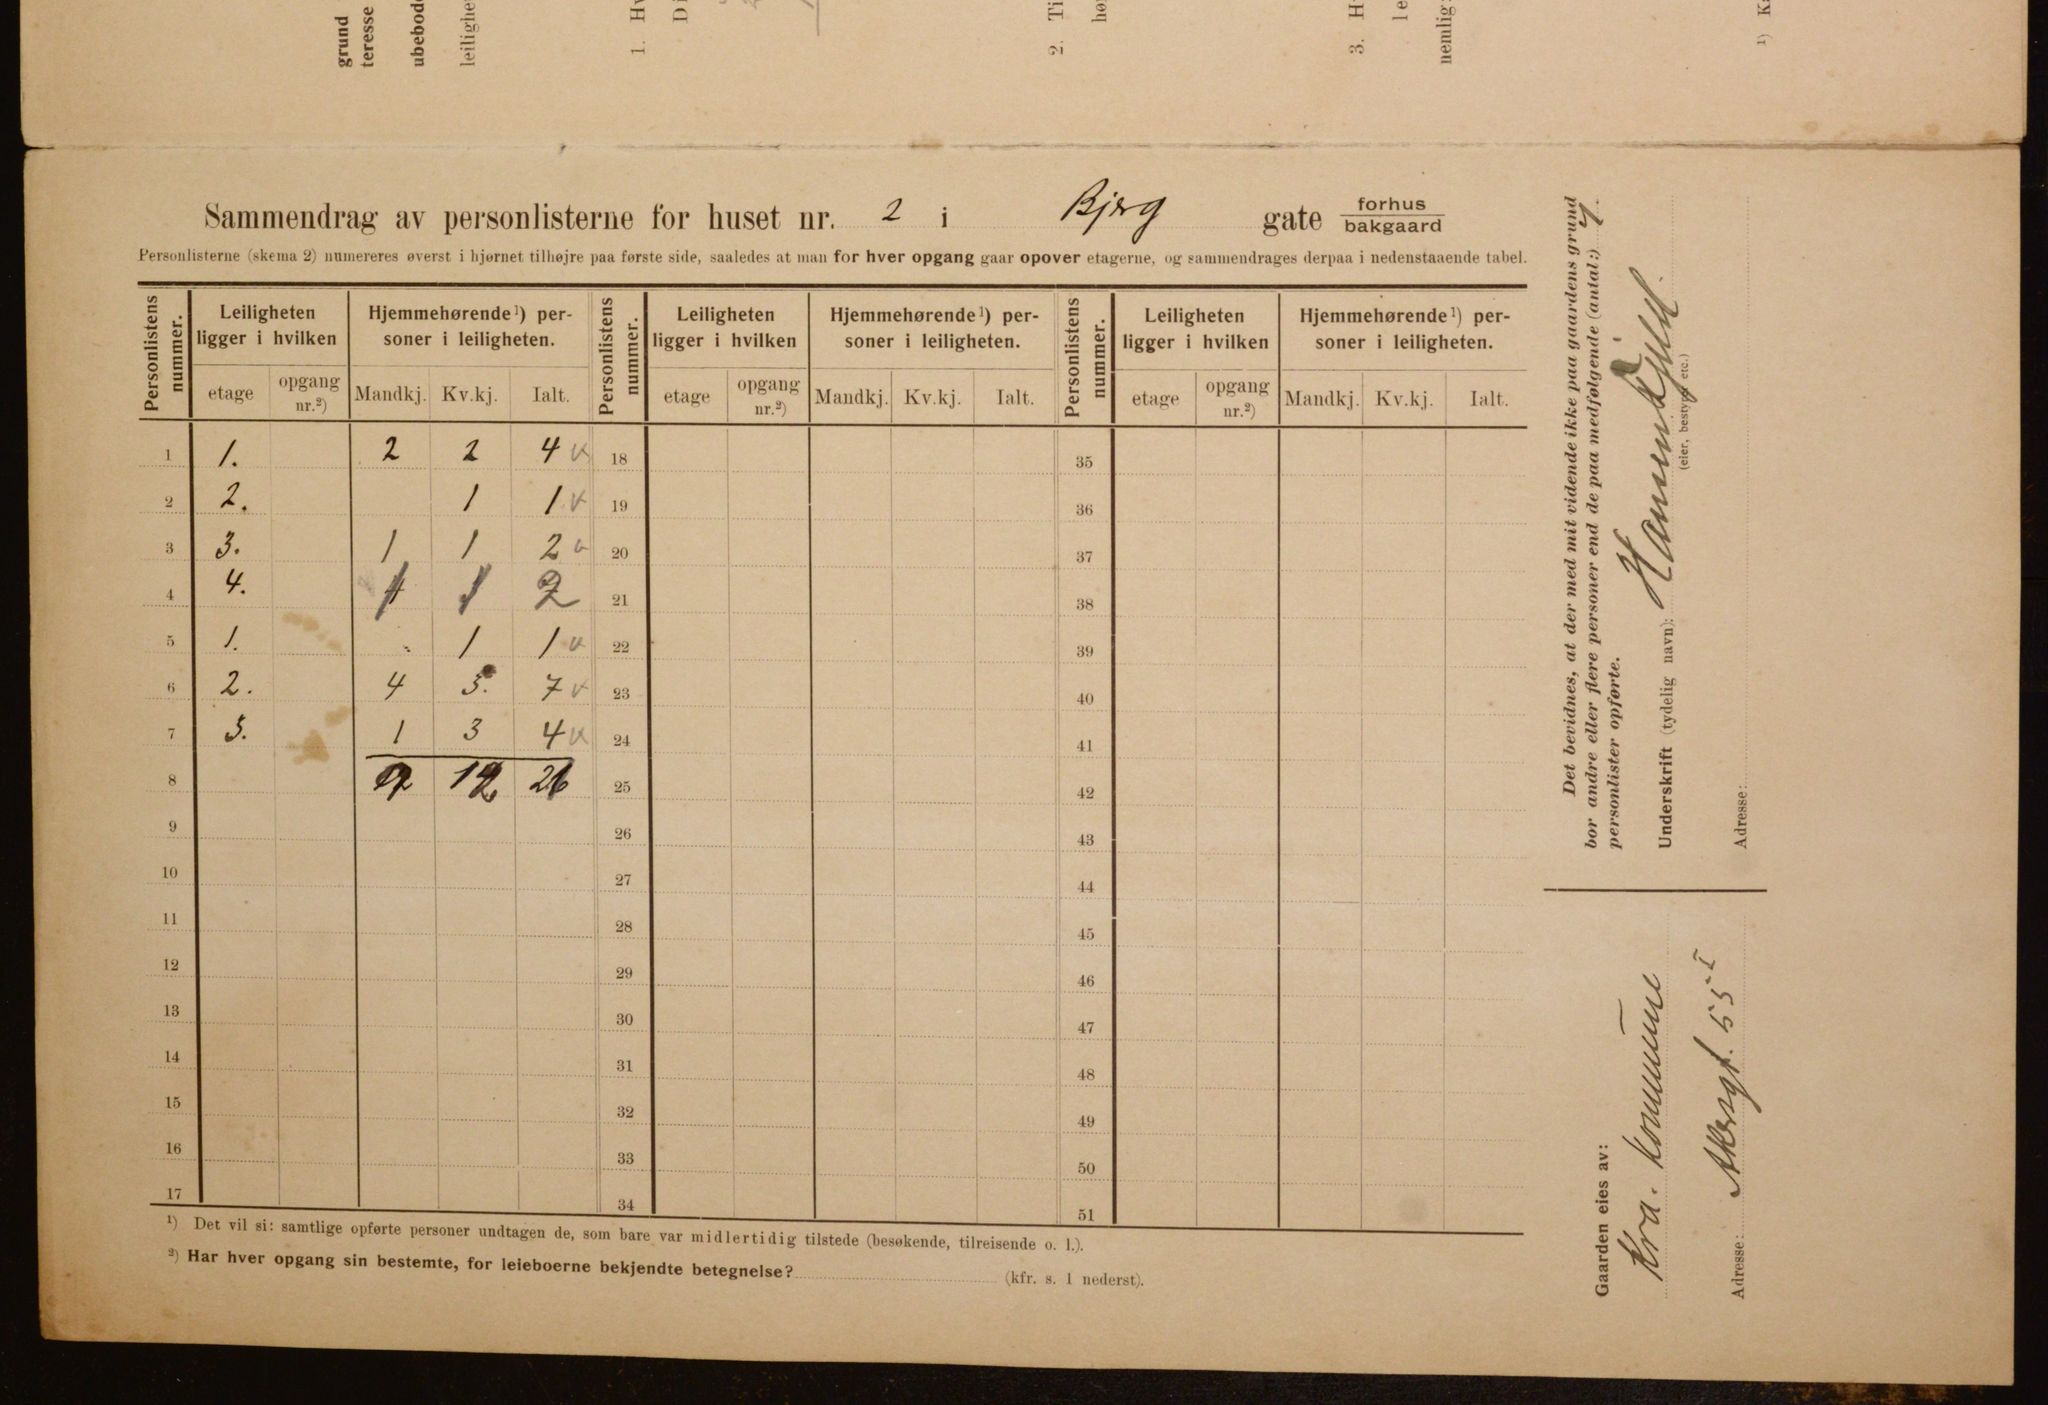 grund
teresse
ubebod
leilighe
1. Hv
Di
2. Ti
hø
3. H
le
nemlig:
¹) K
Sammendrag av personlisterne for huset nr. 2 i Bjerg gate forhus
bakgaard
Personlisterne (skema 2) numereres øverst i hjørnet tilhøjre paa første side, saaledes at man for hver opgang gaar opover etagerne, og sammendrages derpaa i nedenstaaende tabel.
Personlistens nummer. Leiligheten ligger i hvilken Hjemmehørende¹) personer i leiligheten. Personlistens nummer. Leiligheten ligger i hvilken Hjemmehørende¹) personer i leiligheten. Personlistens nummer. Leiligheten ligger i hvilken Hjemmehørende¹) personer i leiligheten.
etage opgang nr.²) Mandkj. Kv.kj. Ialt. etage opgang nr.²) Mandkj. Kv.kj. Ialt. etage opgang nr.²) Mandkj. Kv.kj. Ialt.
1 1. 2 2 4 v 18 35
2 2. 1 1 v 19 36
3 3. 1 1 2 v 20 37
4 4. 1 1 2 21 38
5 1. 1 1 v 22 39
6 2. 4 3. 7 v 23 40
7 3. 1 3 4 v 24 41
8 9 12 21 25 42
9 26 43
10 27 44
11 28 45
12 29 46
13 30 47
14 31 48
15 32 49
16 33 50
17 34 51
¹) Det vil si: samtlige opførte personer undtagen de, som bare var midlertidig tilstede (besøkende, tilreisende o. l.).
²) Har hver opgang sin bestemte, for leieboerne bekjendte betegnelse? (kfr. s. 1 nederst).
Det bevidnes, at der med mit vidende ikke paa gaardens grund
bor andre eller flere personer end de paa medfølgende (antal:) 7.
personlister opførte.
Underskrift (tydelig navn):
(eier, bestyrer etc.)
Adresse:
Gaarden eies av:
Kra. kommune
Adresse: Akersgt. 55 I